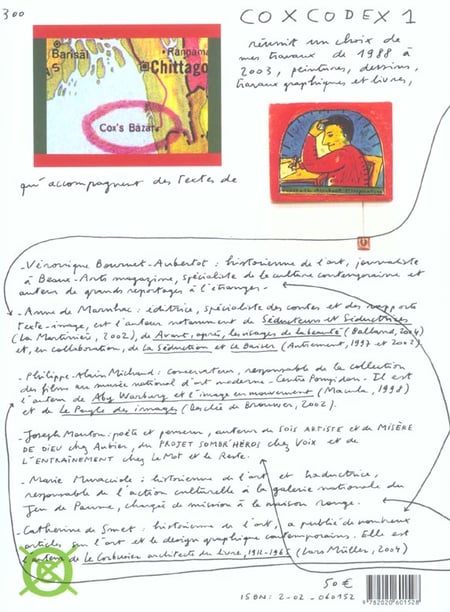 300
COXCODEX 1
réunit un choix de
mes travaux de 1988 à
2003, peintures, dessins,
travaux graphiques et livres,
Barisal
S
Rangama
Chittago
Cox's Bazar
qui accompagnent des textes de
-Véronique Bouruet-Aubertot : historienne de l'art, journaliste
à Beaux-Arts magazine, spécialiste de la culture contemporaine et
auteur de grands reportages à l'étranger.
-Anne de Marnhac : éditrice, spécialiste des contes et des rapports
texte-image, est l'auteur notamment de Séducteurs et Séductrices
(La Martinière, 2002), de Avant, après, les usages de la beauté (Balland, 2004)
et, en collaboration, de La Séduction et Le Baiser (Autrement, 1997 et 2002).
-Philippe-Alain Michaud : conservateur, responsable de la collection
des films au musée national d'art moderne - Centre Pompidou. Il est
l'auteur de Aby Warburg et l'image en mouvement (Macula, 1998)
et de Le Peuple des images (Desclée de Brouwer, 2002).
-Joseph Mouton : poète et penseur, auteur de SOIS ARTISTE et de MISÈRE
DE DIEU chez Aubier, du PROJET SOMBR'HÉROS chez Voix et de
L'ENTRAÎNEMENT chez Le Mot et le Reste.
-Marie Muracciole : historienne de l'art et traductrice,
responsable de l'action culturelle à la galerie nationale du
Jeu de Paume, chargée de mission à la maison rouge.
-Catherine de Smet : historienne de l'art, a publié de nombreux
articles sur l'art et le design graphique contemporains. Elle est
l'auteur de Le Corbusier architecte du livre, 1912-1965 (Lars Müller, 2004)
50 €
ISBN : 2-02-060152
9 782020 601528